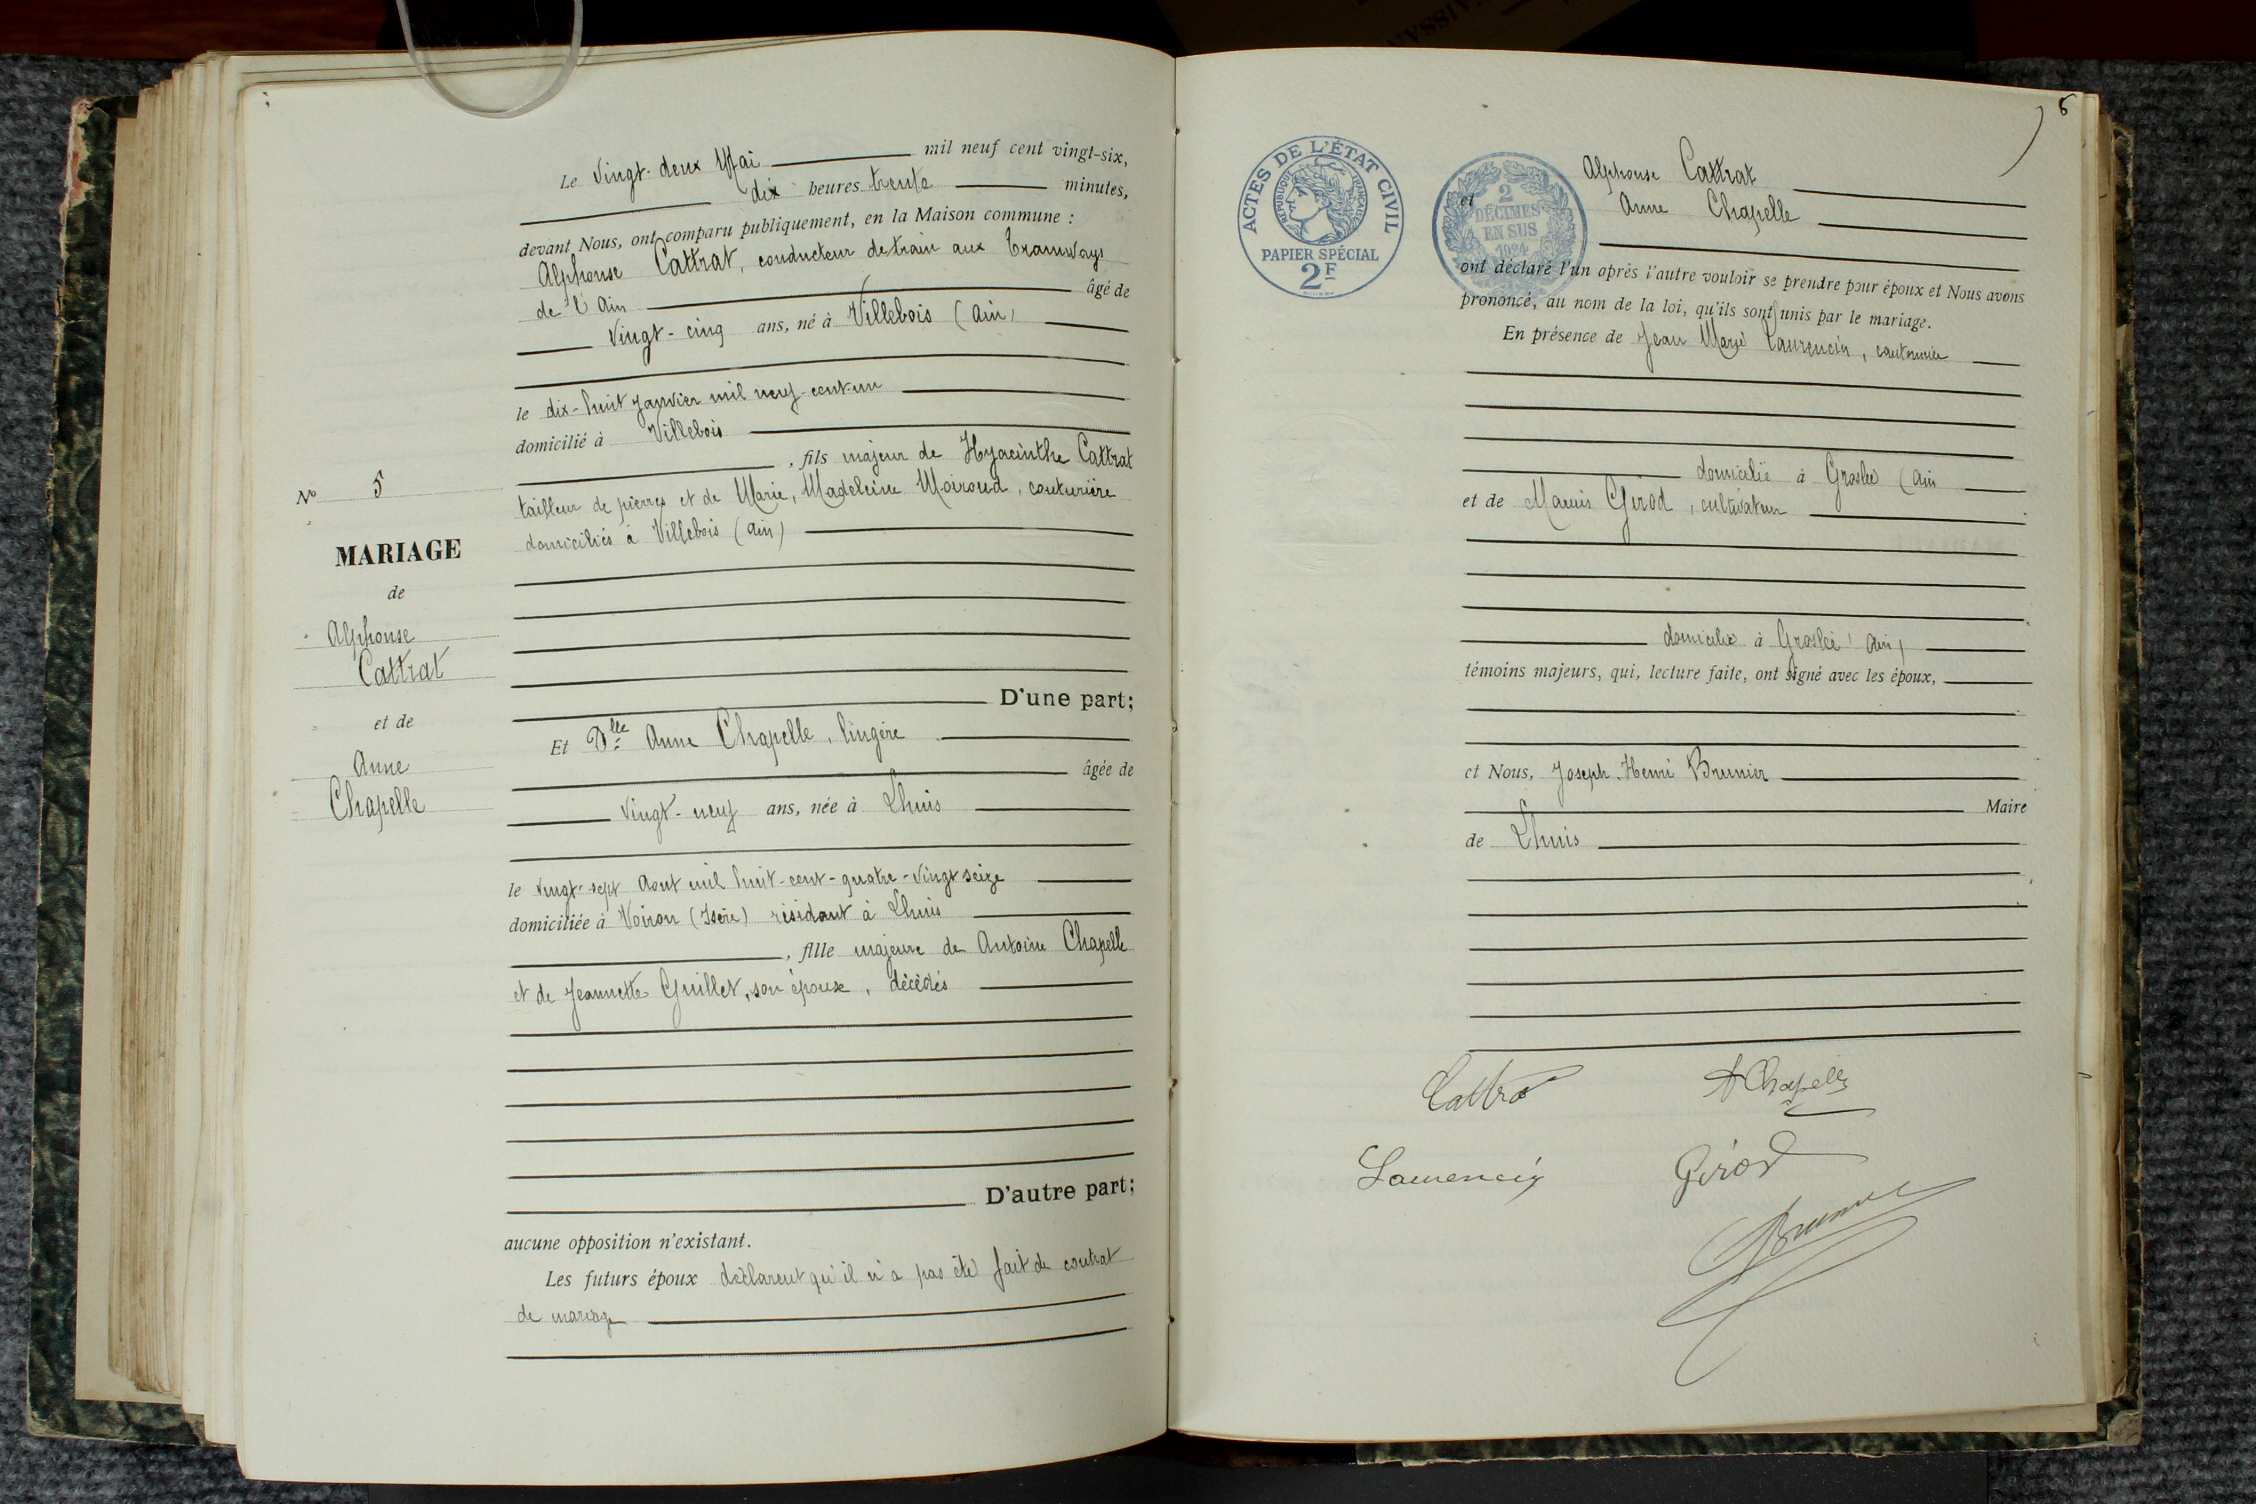 Nº 5
MARIAGE
de
Alphonse
Cattrat
et de
Anne
Chapelle
Le vingt-deux Mai mil neuf cent vingt-six,
dix heures trente minutes,
devant Nous, ont comparu publiquement, en la Maison commune :
Alphonse Cattrat, conducteur de train aux Tramways
de l'Ain âgé de
vingt-cinq ans, né à Villebois (Ain)
le dix-huit janvier mil neuf-cent-un
domicilié à Villebois
, fils majeur de Hyacinthe Cattrat
tailleur de pierres et de Marie, Madeleine Moiroud, couturière
domiciliés à Villebois (Ain)
D'une part;
Et Dlle Anne Chapelle, lingère
âgée de
vingt-neuf ans, née à Lhuis
le vingt-sept Aout mil huit-cent-quatre-vingt seize
domiciliée à Voiron (Isère) résidant à Lhuis
, fille majeure de Antoine Chapelle
et de Jeannette Guillet, son épouse, décédés
D'autre part;
aucune opposition n'existant.
Les futurs époux déclarent qu'il n'a pas été fait de contrat
de mariage
6
ACTES DE L'ÉTAT CIVIL
RÉPUBLIQUE FRANÇAISE
PAPIER SPÉCIAL
2F
2
DÉCIMES
EN SUS
1924
Alphonse Cattrat
et Anne Chapelle
ont déclaré l'un après l'autre vouloir se prendre pour époux et Nous avons
prononcé, au nom de la loi, qu'ils sont unis par le mariage.
En présence de Jean Marie Laurencin, cantonnier
domicilié à Groslée (Ain
et de Girod, cultivateur
domicilié à Groslée (Ain)
témoins majeurs, qui, lecture faite, ont signé avec les époux,
et Nous, Joseph Henri Brunier
Maire
de Lhuis
Cattra
A Chapelle
Laurencin
Girod
Brunier